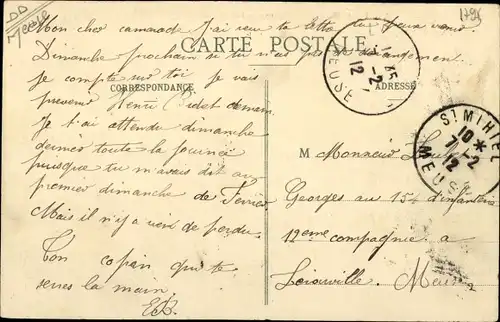 DD
Meuse
1795
Mon cher camarade J'ai reçu ta lettre tu peux venir
Dimanche prochain si tu n'as pas de dérangement
CARTE POSTALE
Je compte sur toi je vais
CORRESPONDANCE
ADRESSE
prevenir Henri demain
Je t'ai attendu dimanche
dernier toute la journée
puisque tu m'avais dit au
premier dimanche de Fevrier
Mais il n'y a rien de perdu.
Ton copain qui te
serres la main.
EB.
MEUSE
7-2
12
ST MIHIEL
10 *
7-2
12
MEUSE
M Monsieur
Georges au 154 d'infanterie
12eme compagnie a
Lérouville. Meuse